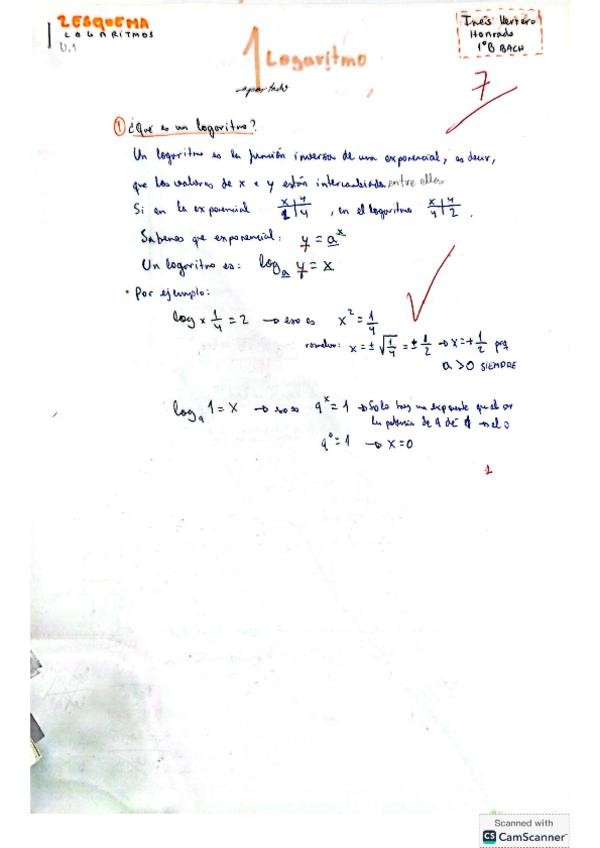 ESQUEMA
LOGARÍTMOS
U.1
Inés Herrero
Honrado
1ºB BACH
1 Logaritmo
apartado
7
① ¿Qué es un logaritmo?
Un logaritmo es la función inversa de una exponencial, es decir,
que los valores de x e y están intercambiados entre ellos
Si en la exponencial x|y 2|4, en el logaritmo x|y 4|2.
Sabemos que exponencial: y = a^x
Un logaritmo es: log_a y = x
• Por ejemplo:
log_x 1/4 = 2 → eso es x² = 1/4
x = ± √1/4 = ± 1/2 → x = + 1/2 prq
a > 0 SIEMPRE
1 = x → eso es 9^x = 1 → Solo hay un exponente
potencia de 9 dé 1 → el 0
9^0 = 1 → x = 0
1
Scanned with
CS CamScanner